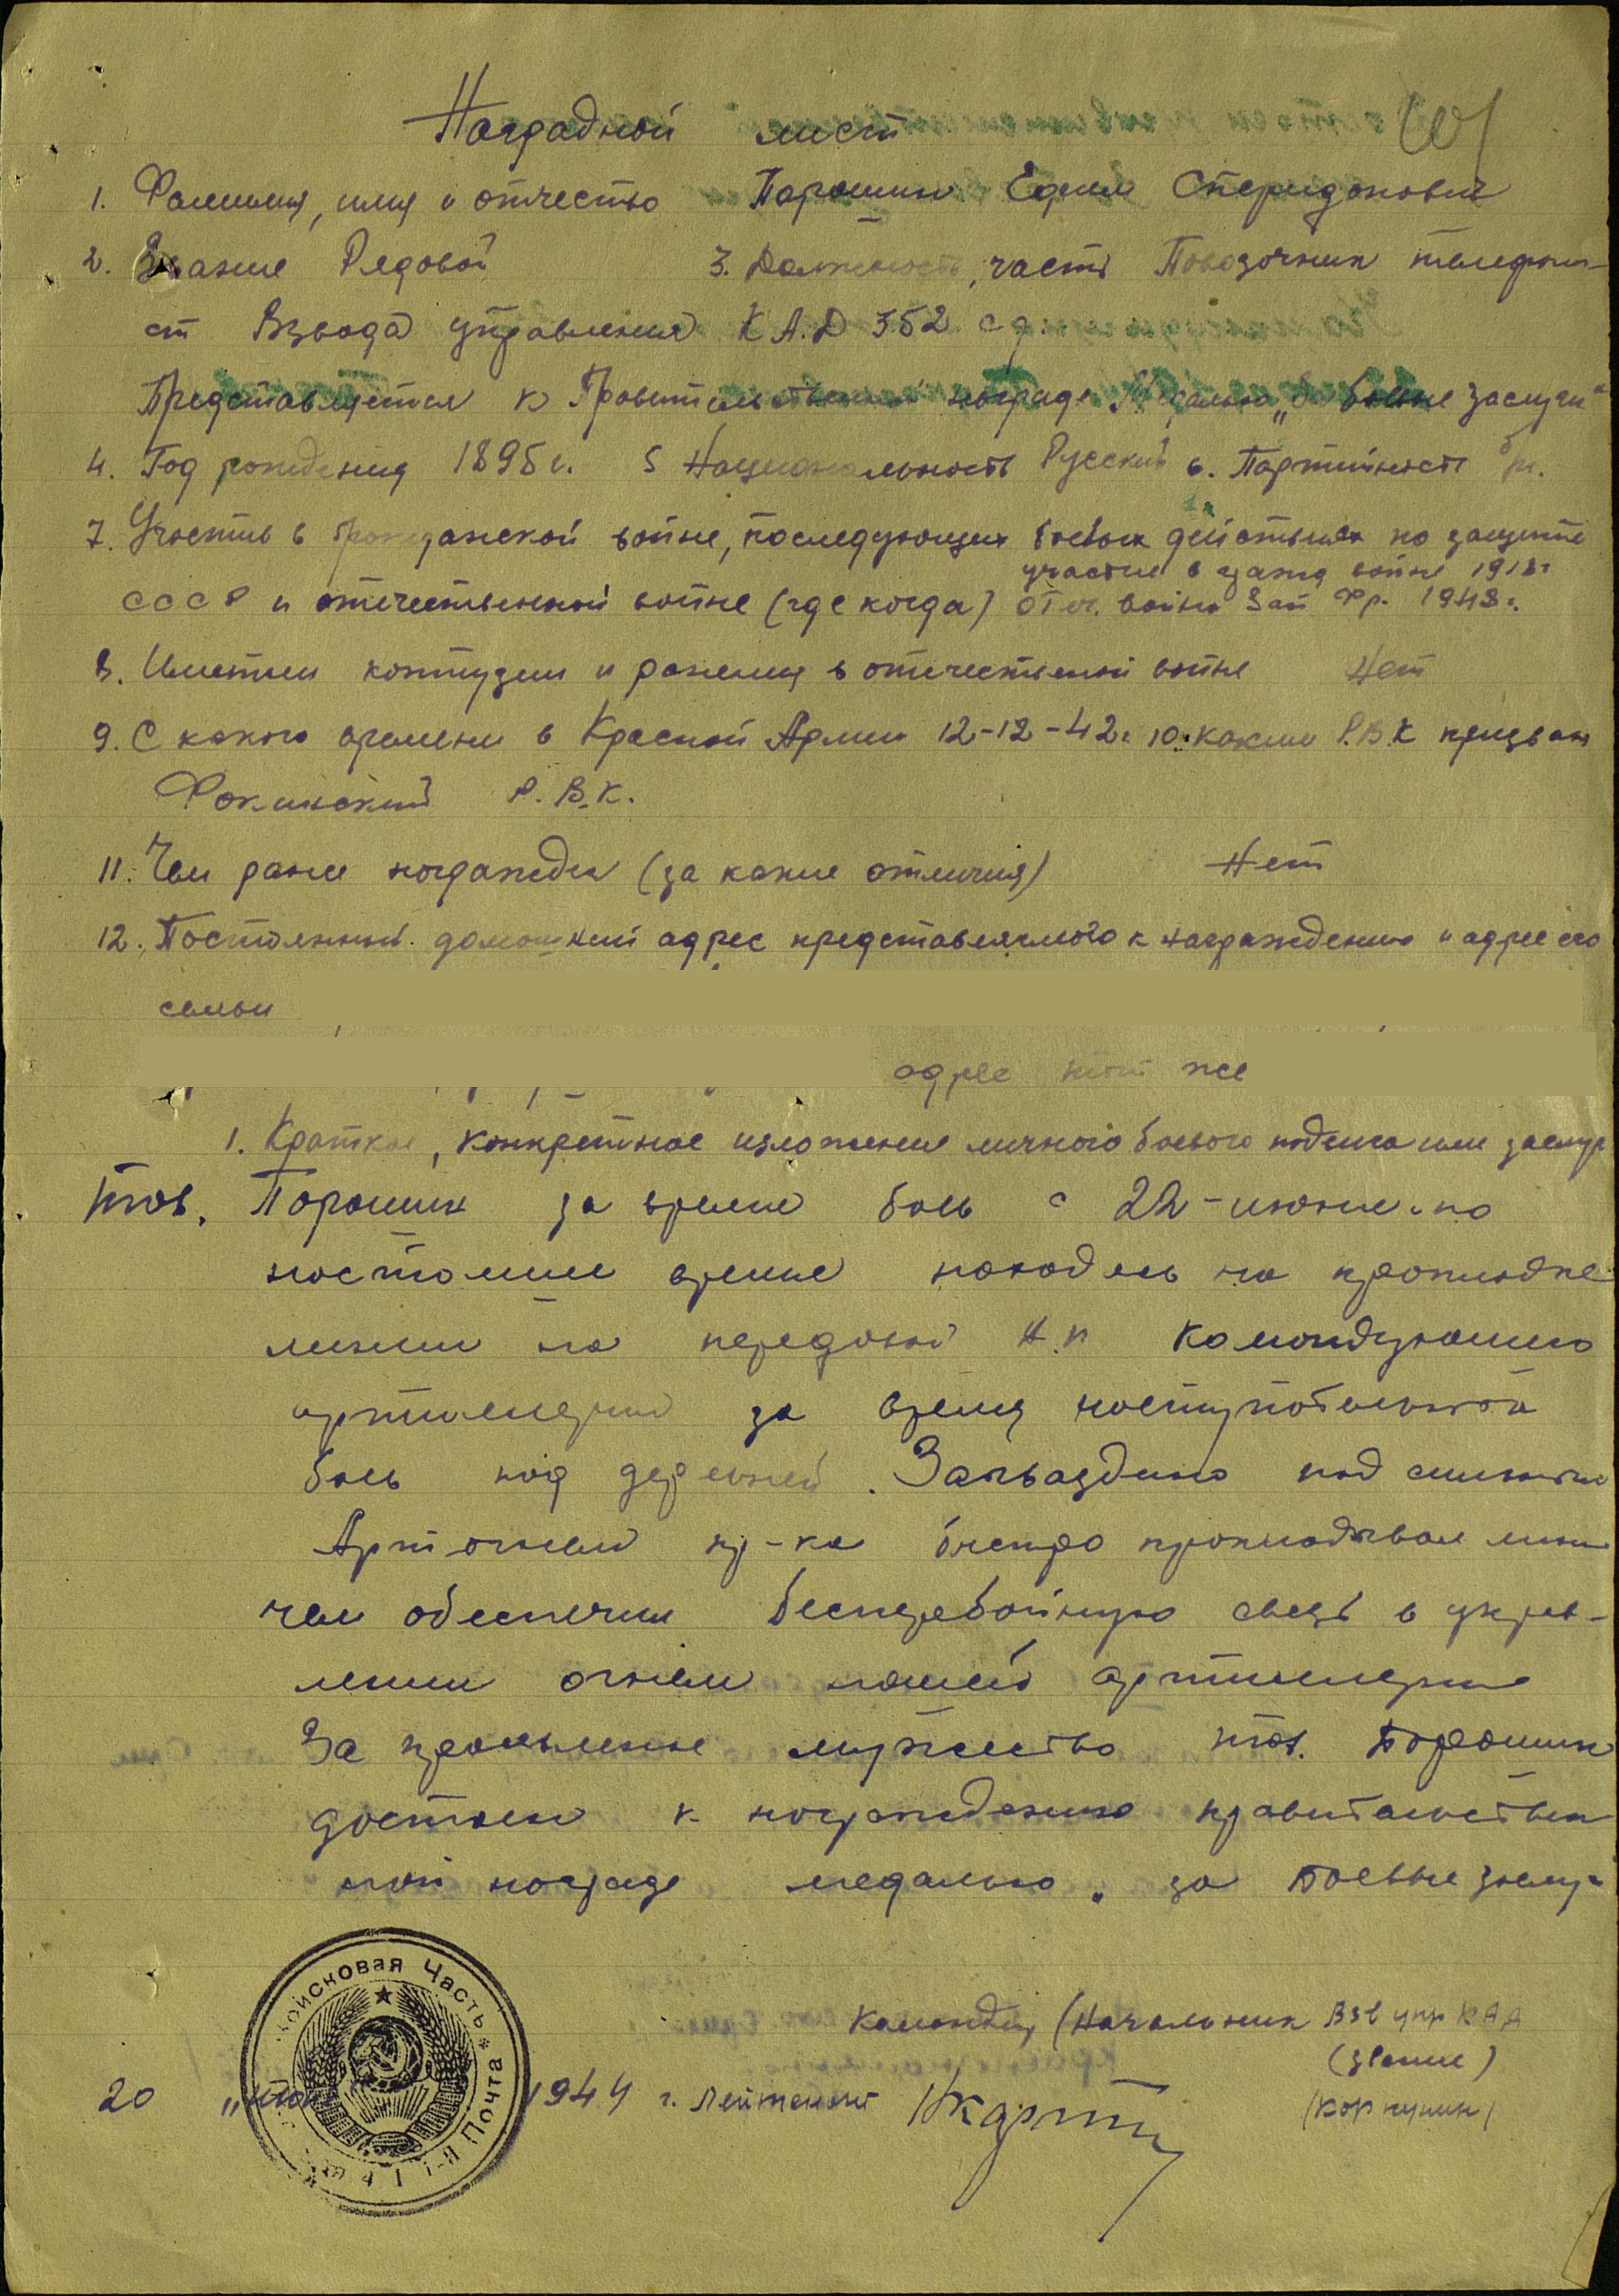 Наградной лист
1. Фамилия, имя и отчество Порошин Ефим Спиридонович
2. Звание Рядовой 3. Должность, часть Повозочник телефони-
ст Взвода управления К А.Д 352 с д.
Представляется к Правительственной награде Медалью „За боевые заслуги“
4. Год рождения 1895 г. 5 Национальность Русский 6. Партийность б/п.
7. Участие в гражданской войне, последующих боевых действиях по защите
участие в гражд войне 1918г
СССР и отечественной войне (где когда) Отеч. война Зап Фр. 1943г.
8. Имеет ли контузии и ранения в отечественной войне Нет
9. С какого времени в Красной Армии 12-12-42г 10. каким Р.В.К призван
Фокинский Р.В.К.
11. Чем ранее награжден (за какие отличия) Нет
12. Постоянный домашний адрес представляемого к награждению и адрес его
семьи
адрес тот же
1. Краткое, конкретное изложение личного боевого подвига или заслуг
Тов. Порошин за время боев с 22-июня по
настоящее время находясь на прокладке
линии на передовой Н.П командующего
артилерии за время наступательной
боев под деревней Загваздино под сильным
Арт огнем пр-ка быстро прокладывал линию
чем обеспечил бесперебойную связь в управ-
лении огнем нашей артиллерии
За проявленное мужество тов. Порошин
достоин к награждению правительствен
ной награде медалью „за Боевые заслуги
Войсковая Часть * Полевая Почта
Командир (Начальник Взв упр КАД
(звание)
20 „июля 1944 г. Лейтенант
(Корпушин)